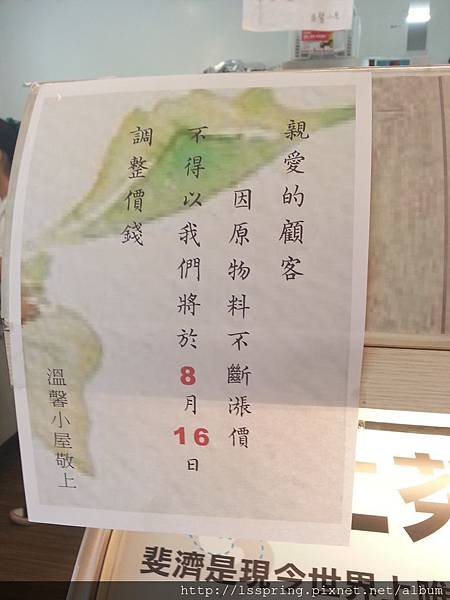 親愛的顧客
因原物料不斷漲價
不得以我們將於8月16日
調整價錢
溫馨小屋敬上
斐濟是現今世界上唯
http://lsspring.pixnet.net/album